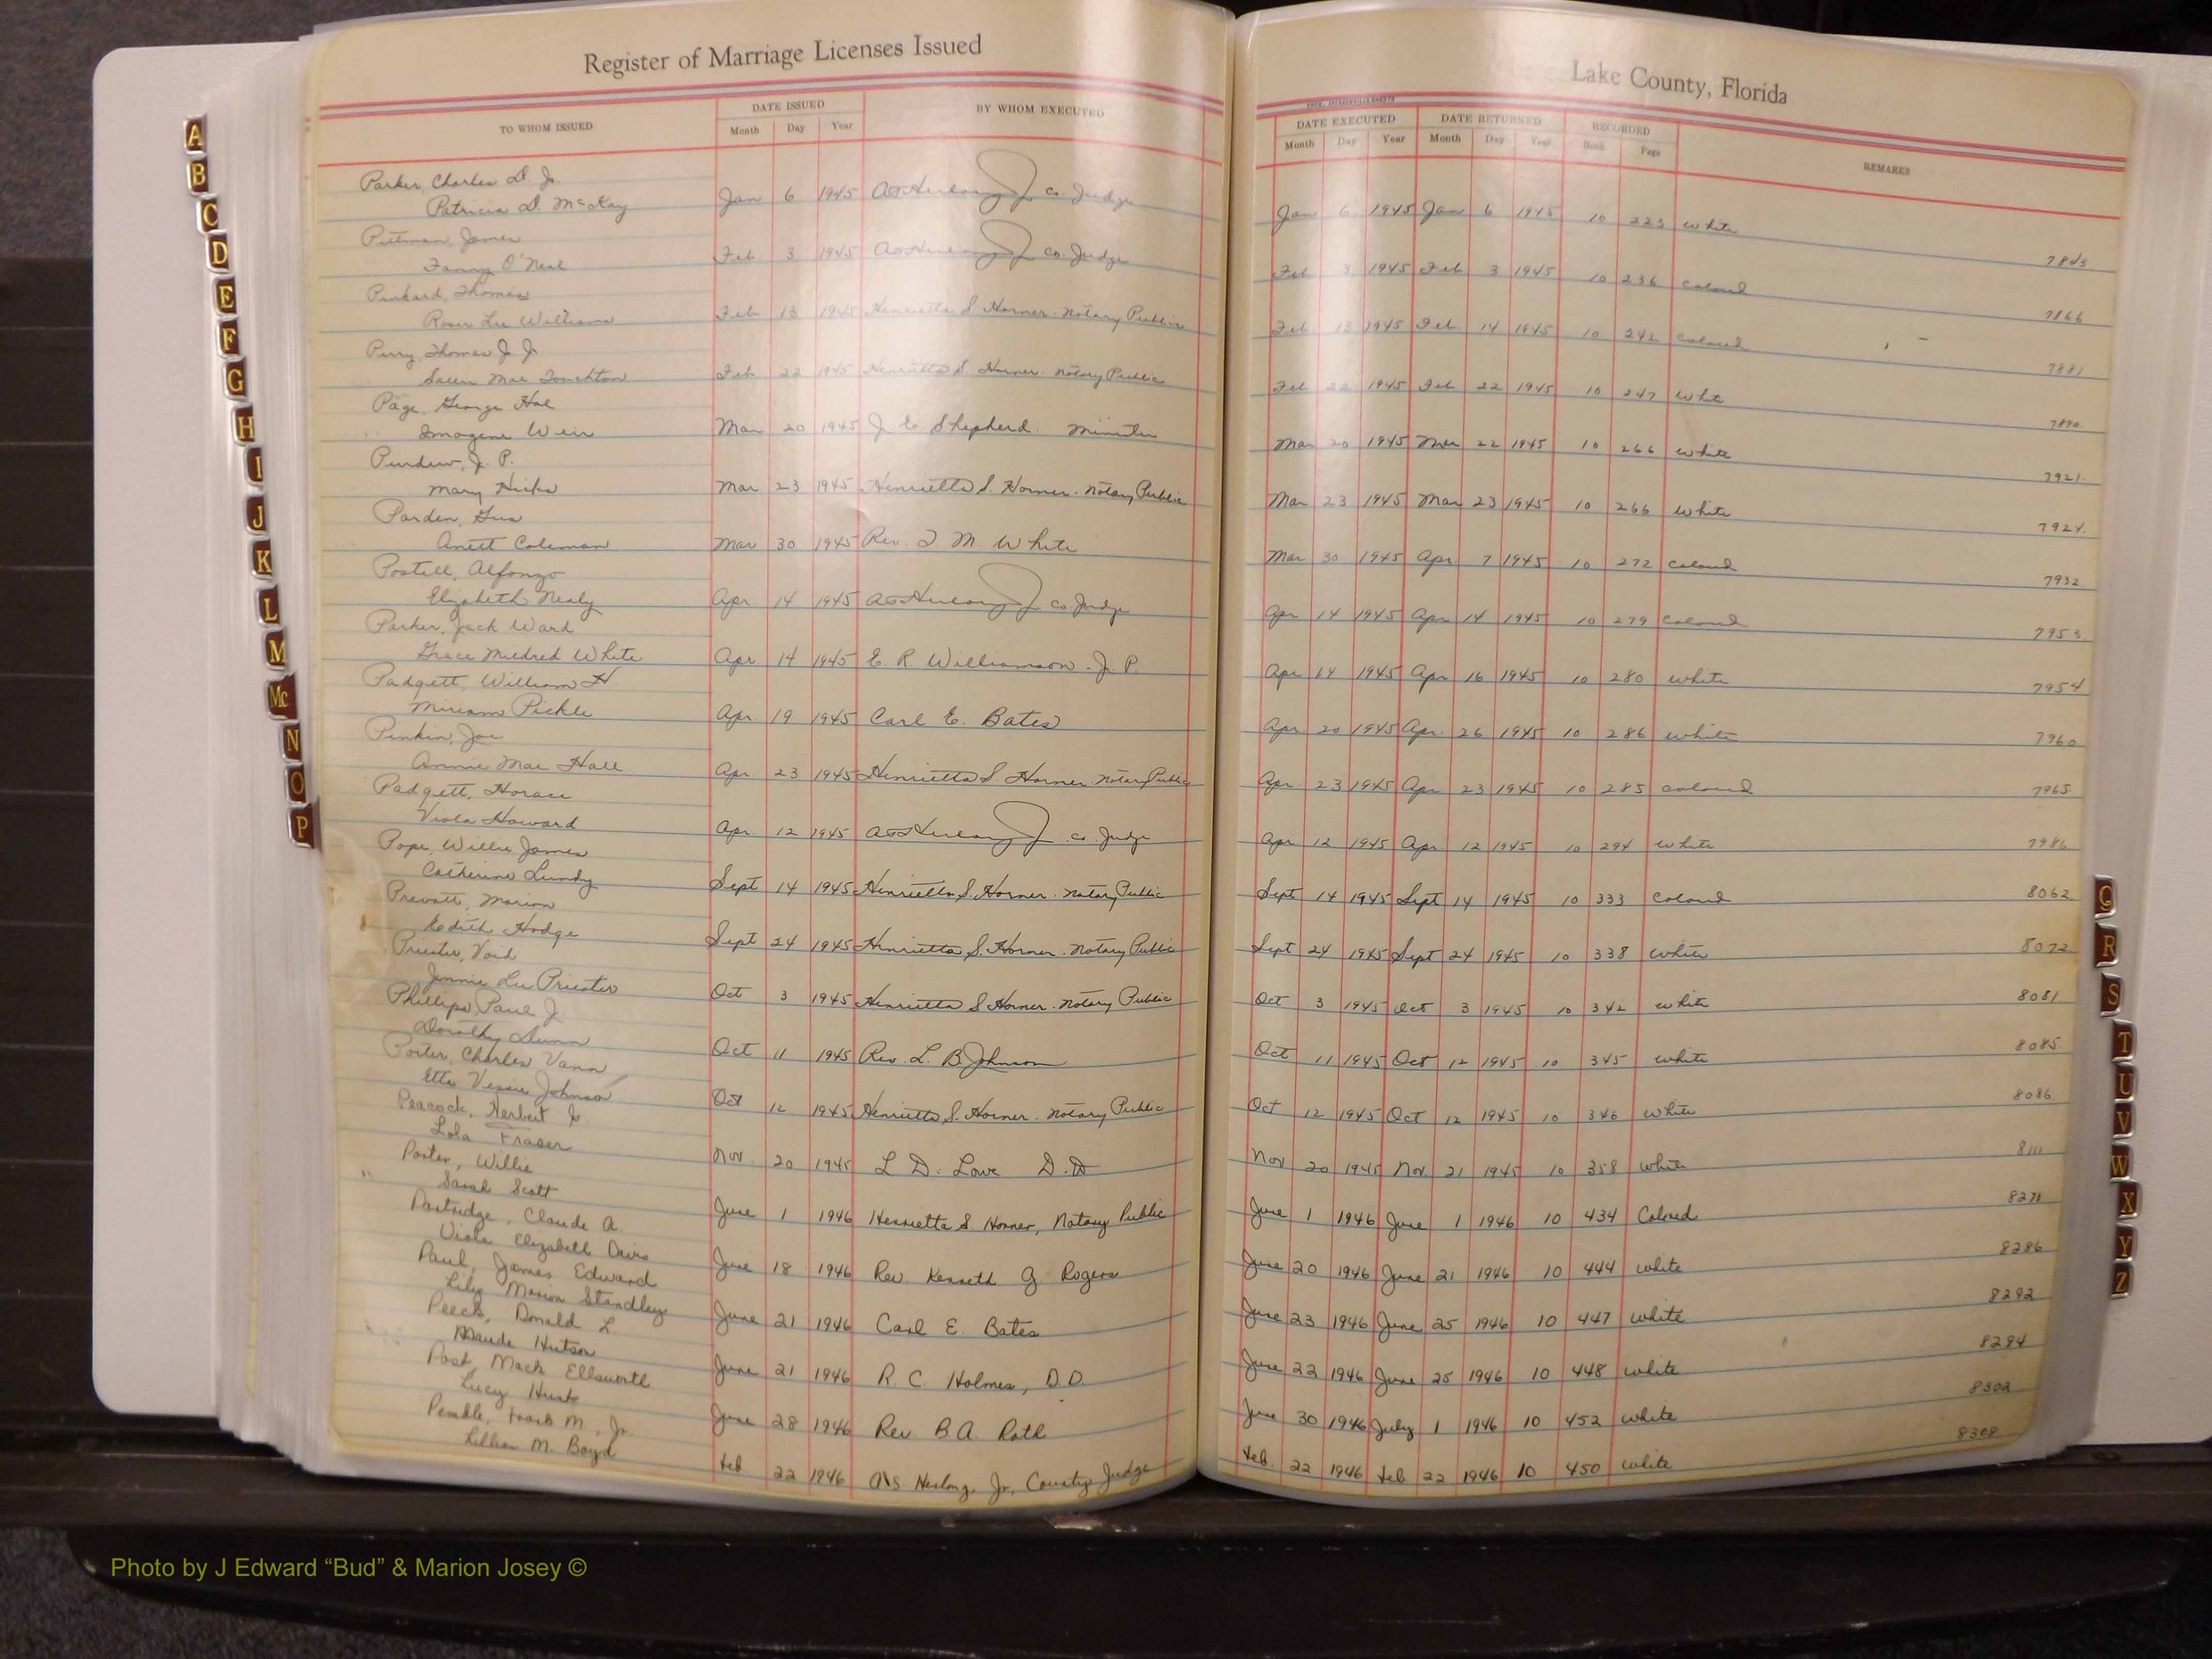 Register of Marriage Licenses Issued
Lake County, Florida
TO WHOM ISSUED
DATE ISSUED
Month Day Year
BY WHOM EXECUTED
DATE EXECUTED
Month Day Year
DATE RETURNED
Month Day Year
RECORDED
Book Page
REMARKS
Parker, Charles D. Jr
Patricia D. McKay Jan 6 1945 Co. Judge Jan 6 1945 Jan 6 1945 10 223 white 7843
Pittman, James
Fanny O'Neal Feb 3 1945 Co. Judge Feb 3 1945 Feb 3 1945 10 236 colored 7866
Pinkard, Thomas
Rosa Lee Williams Feb 13 1945 Henrietta S. Horner. Notary Public Feb 13 1945 Feb 14 1945 10 242 colored 7881
Perry, Thomas J. Jr
Mae Touchton Feb 22 1945 Henrietta S. Horner. Notary Public Feb 22 1945 Feb 22 1945 10 247 White 7890
Page, George Hal
Imogene Weir Mar 20 1945 J. E. Shepherd. Minister Mar 20 1945 Mar 22 1945 10 266 white 7921
J. P.
Mary Hicks Mar 23 1945 Henrietta S. Horner. Notary Public Mar 23 1945 Mar 23 1945 10 266 white 7924
Parden, Gus
Coleman Mar 30 1945 Rev. J. M. White Mar 30 1945 Apr 7 1945 10 272 colored 7932
Postell, Alfonzo
Elizabeth Nealy Apr 14 1945 Co Judge Apr 14 1945 Apr 14 1945 10 279 colored 7953
Parker, Jack Ward
Grace Mildred White Apr 14 1945 E. R Williamson. J. P. Apr 14 1945 Apr 16 1945 10 280 white 7954
Padgett, William H.
Miriam Pickle Apr 19 1945 Carl E. Bates Apr 20 1945 Apr. 26 1945 10 286 white 7960
Pinkin, Joe
Annie Mae Hall Apr. 23 1945 Henrietta S. Horner. Notary Public Apr. 23 1945 Apr 23 1945 10 285 colored 7965
Padgett, Horace
Viola Howard Apr. 12 1945 Co Judge Apr 12 1945 Apr 12 1945 10 294 white 7986
Pope, Willie James
Catherine Lundy Sept 14 1945 Henrietta S. Horner. Notary Public Sept 14 1945 Sept 14 1945 10 333 colored 8062
Prevatt, Marion
Edith Hodge Sept 24 1945 Henrietta S. Horner. Notary Public Sept 24 1945 Sept 24 1945 10 338 white 8072
Priester, Void
Jennie Lee Priester Oct 3 1945 Henrietta S Horner. Notary Public Oct 3 1945 Oct 3 1945 10 342 white 8081
Phillips, Paul J.
Dorothy Dunn Oct 11 1945 Rev. L. B. Johnson Oct 11 1945 Oct 12 1945 10 345 white 8085
Porter, Charles Vann
Etta Vessie Johnson Oct 12 1945 Henrietta S. Horner. Notary Public Oct 12 1945 Oct 12 1945 10 346 white 8086
Peacock, Herbert
Lola Fraser Nov. 20 1945 L. D. Lowe D.D Nov 20 1945 Nov. 21 1945 10 358 white 8111
Porter, Willie
" Sarah Scott June 1 1946 Henrietta S. Horner, Notary Public June 1 1946 June 1 1946 10 434 Colored 8271
Partridge, Claude A.
Viola Elizabeth Davis June 18 1946 Rev. Kenneth G. Rogers June 20 1946 June 21 1946 10 444 white 8286
Paul, James Edward
Lily Marion Standley June 21 1946 Carl E. Bates June 23 1946 June 25 1946 10 447 white 8292
Peeck, Donald L.
Maude Hutson June 21 1946 R. C. Holmes, D.D. June 22 1946 June 25 1946 10 448 white 8294
Post, Mack Ellsworth
Lucy June 28 1946 Rev. B A Roth June 30 1946 July 1 1946 10 452 white 8302
Pemble, Frank M., Jr.
Lillian M. Boyd Feb 22 1946 A.S. Herlong, Jr, County Judge Feb. 22 1946 Feb 22 1946 10 450 white 8308
A
B
C
D
E
F
G
H
I
J
K
L
M
Mc
N
O
P
Q
R
S
T
U
V
W
X
Y
Z
Photo by J Edward “Bud” & Marion Josey ©